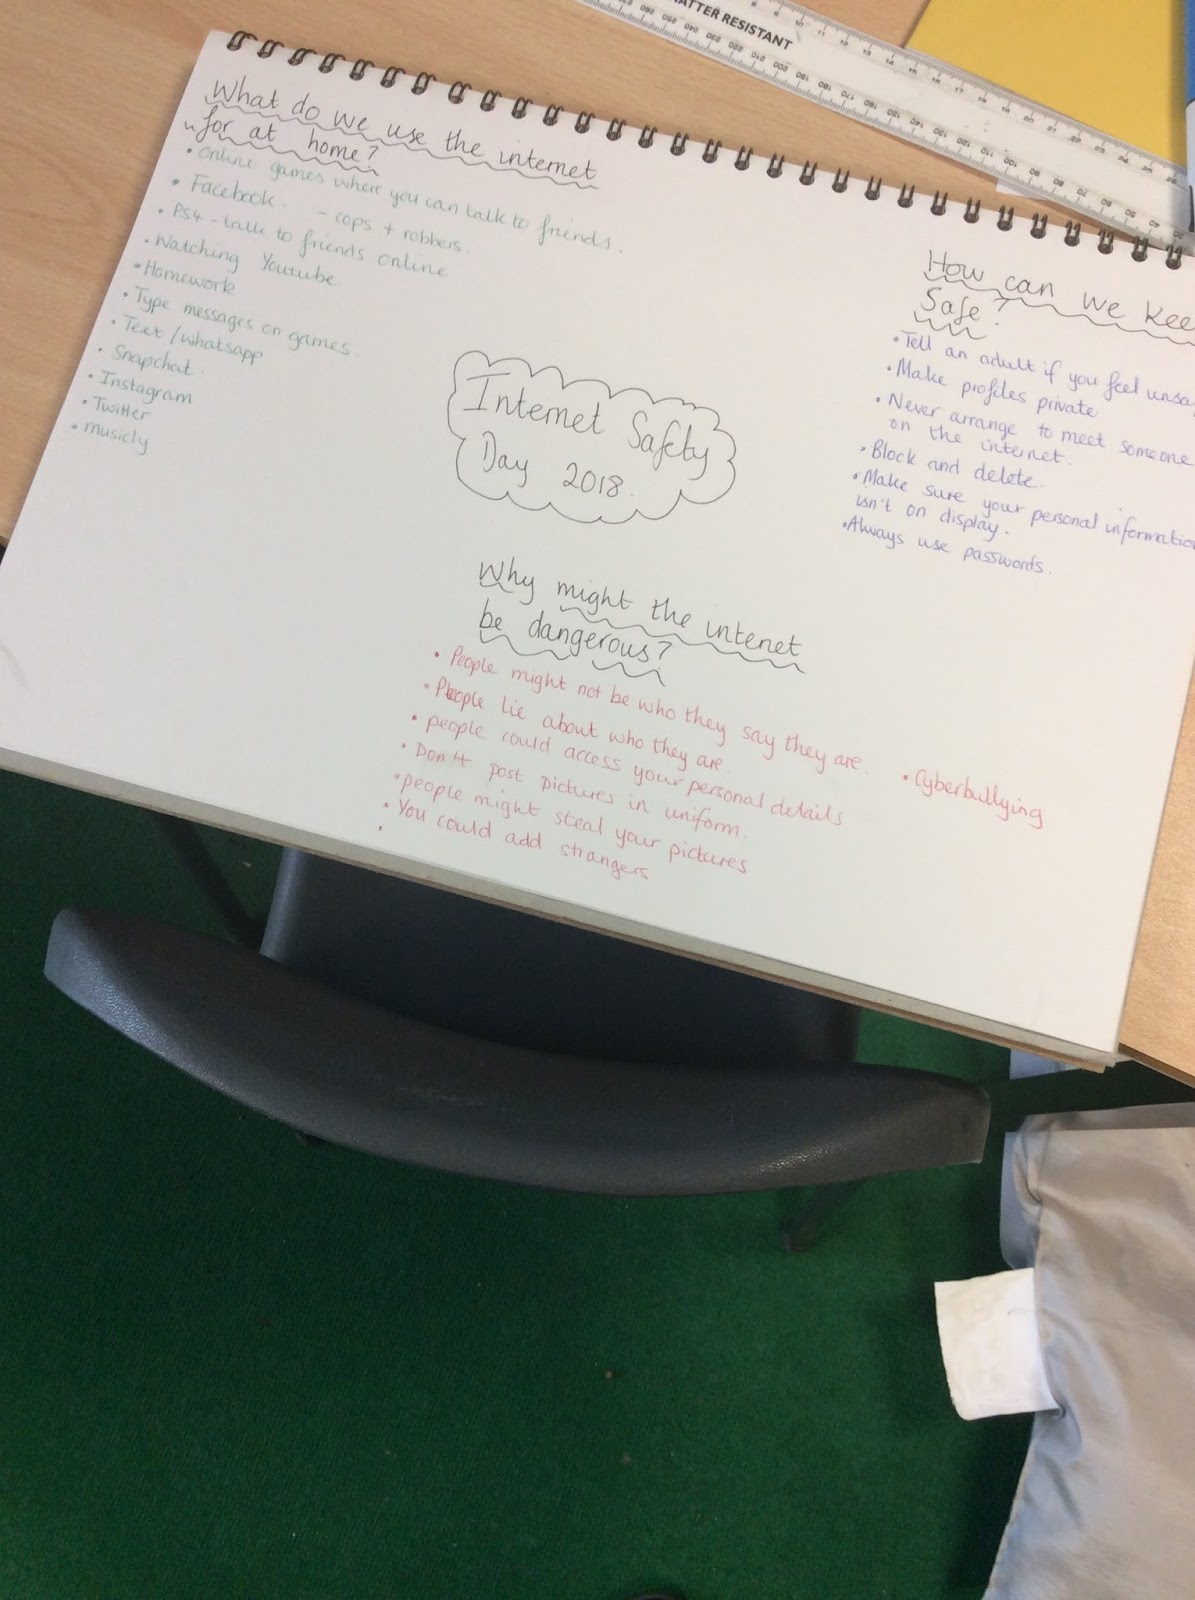 SHATTER RESISTANT
What do we use the internet
for at home?
• Online games where you can talk to friends.
- cops + robbers.
• Facebook.
• PS4 - talk to friends online
• Watching Youtube
• Homework
• Type messages on games.
• Text /whatsapp
• Snapchat.
• Instagram
• Twitter
• musicly
Internet Safety
Day 2018.
How can we kee
Safe?
• Tell an adult if you feel unsa
• Make profiles private
• Never arrange to meet someone
on the internet.
• Block and delete.
• Make sure your personal informatio
isn't on display.
• Always use passwords.
Why might the intenet
be dangerous?
• People might not be who they say they are.
• People lie about who they are.
• people could access your personal details
• Don't post pictures in uniform.
• people might steal your pictures
• You could add strangers
•
• Cyberbullying